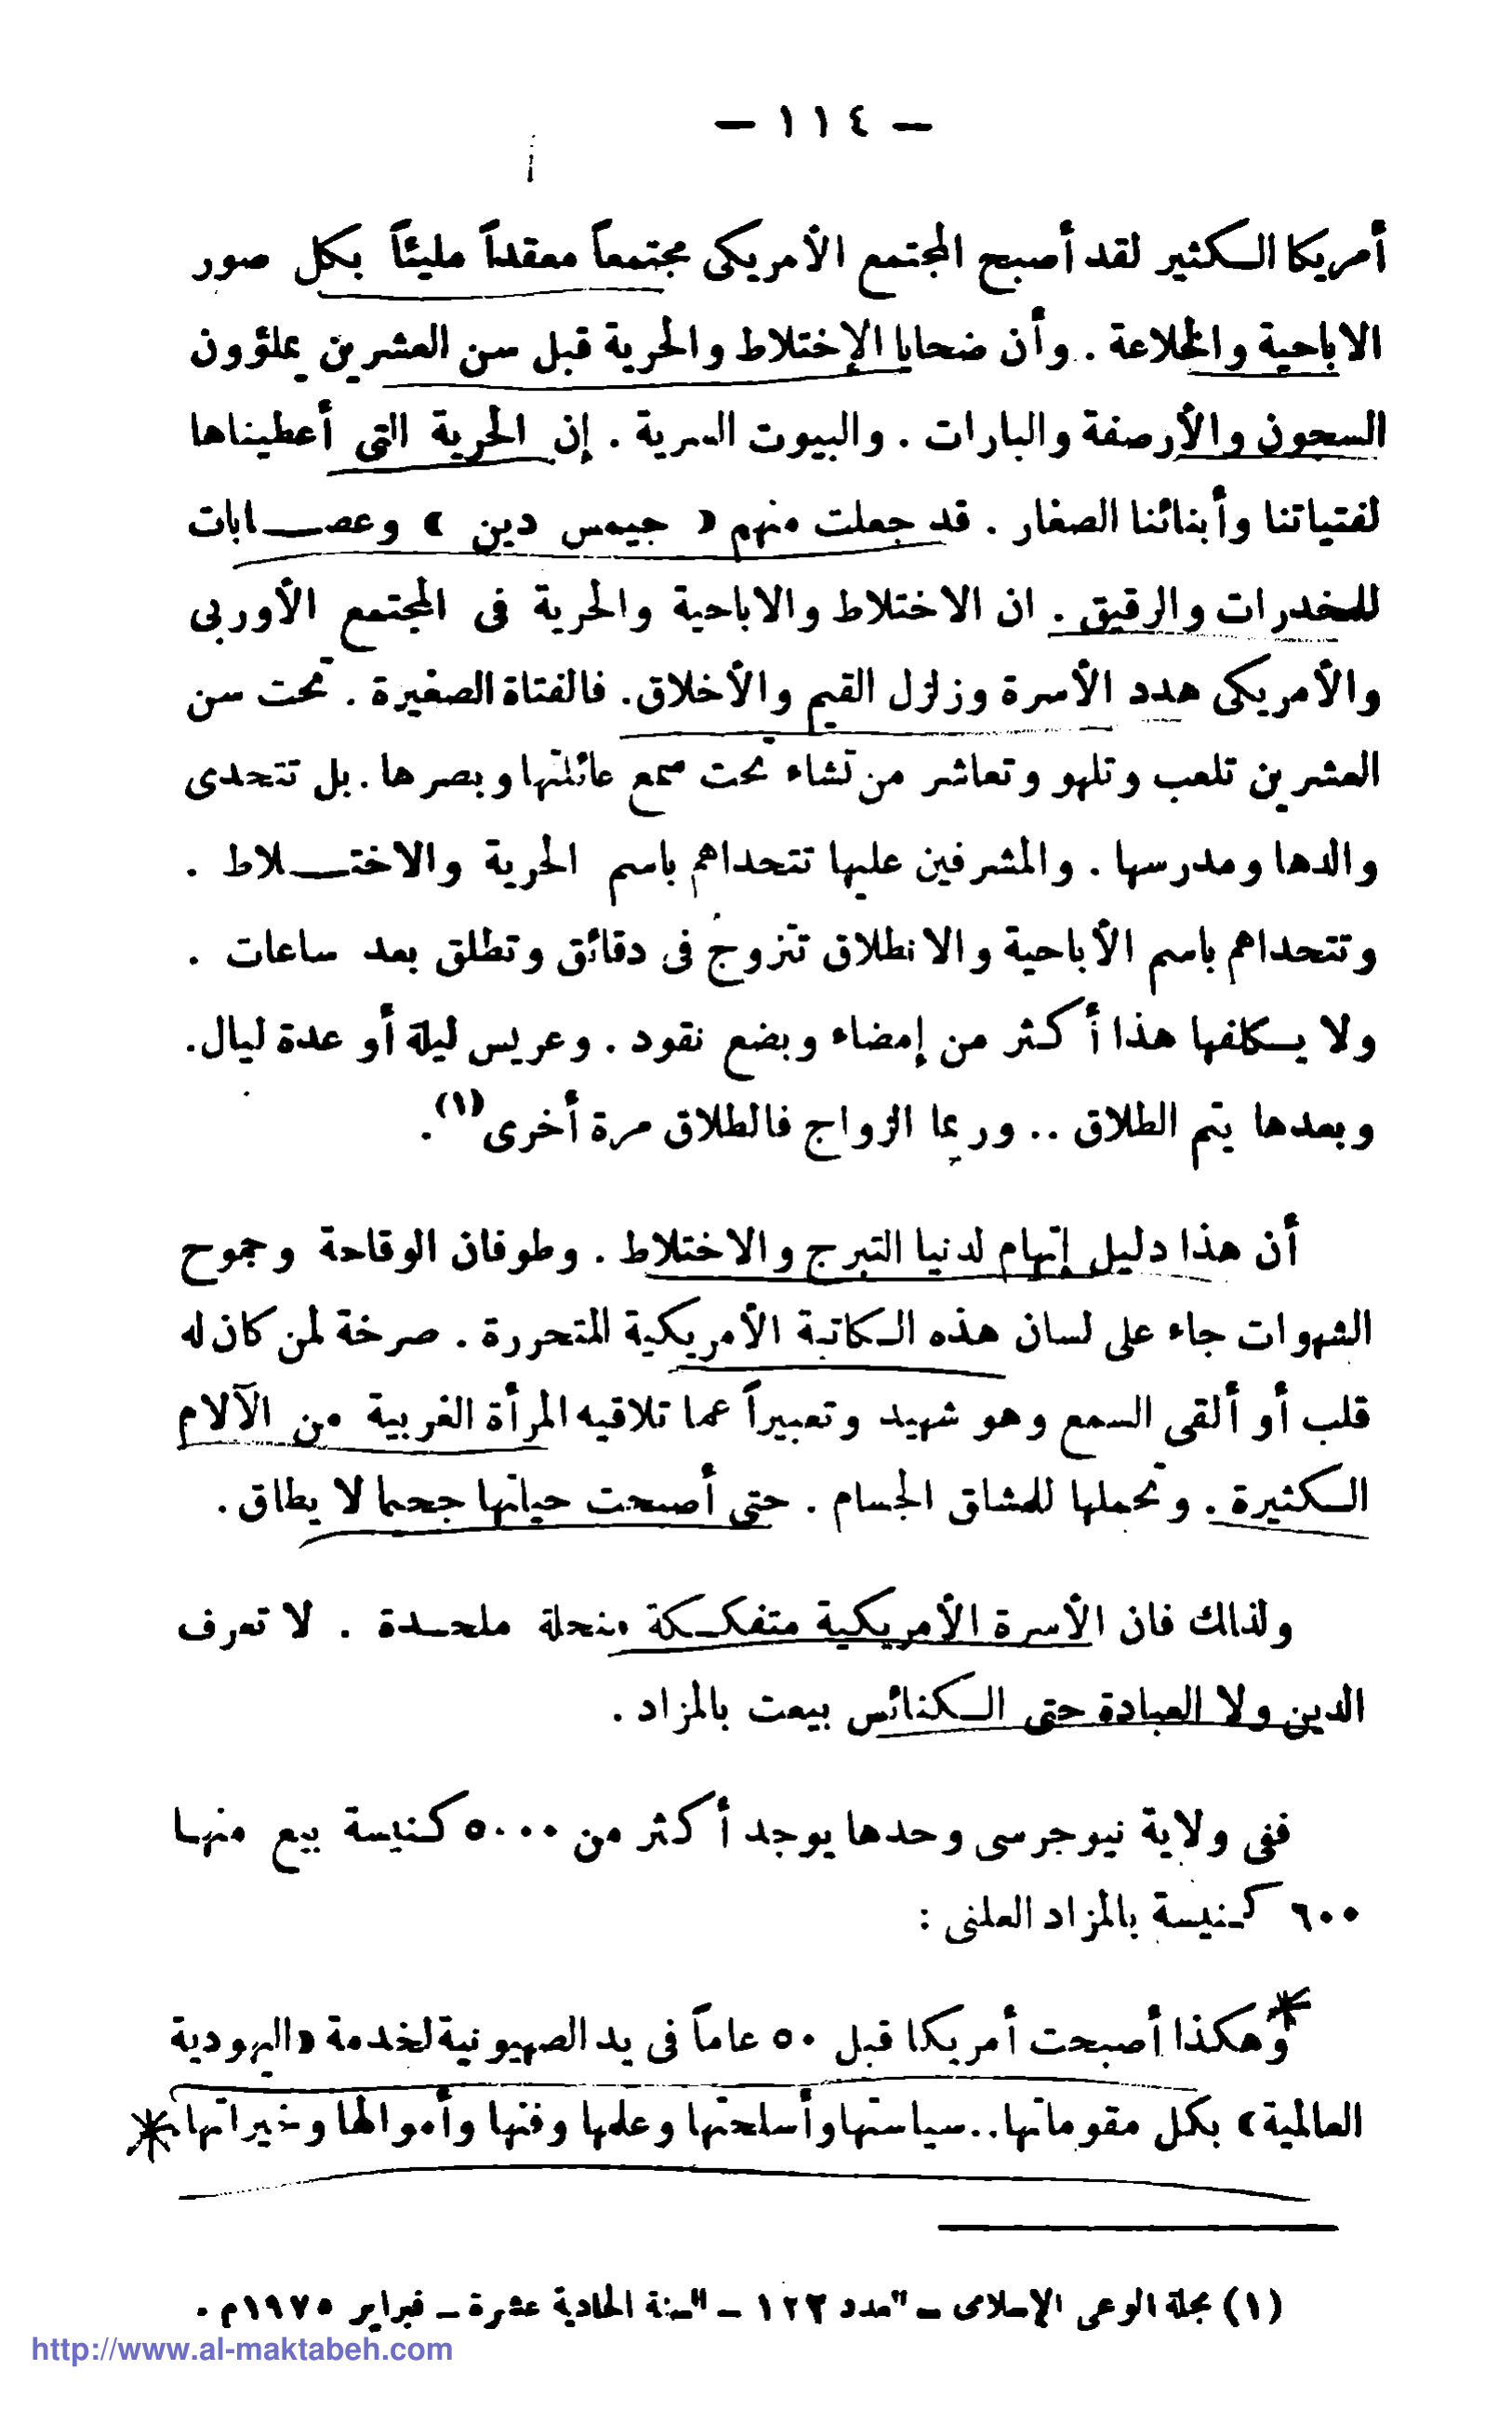 — ١١٤ —
أمريكا الكثير لقد أصبح المجتمع الأمريكى مجتمعاً معقداً مليئاً بكل صور
الاباحية والخلاعة . وأن ضحايا الإختلاط والحرية قبل سن العشرين يملؤون
السجون والأرصفة والبارات . والبيوت السرية . إن الحرية التى أعطيناها
لفتياتنا وأبنائنا الصغار . قد جعلت منهم « جيمس دين » وعصابات
للمخدرات والرقيق . ان الاختلاط والاباحية والحرية فى المجتمع الأوربى
والأمريكى هدد الأسرة وزلزل القيم والأخلاق . فالفتاة الصغيرة . تحت سن
العشرين تلعب وتلهو وتعاشر من تشاء تحت سمع عائلتها وبصرها . بل تتحدى
والدها ومدرسها . والمشرفين عليها تتحداهم باسم الحرية والاختلاط .
وتتحداهم باسم الأباحية والانطلاق تتزوج فى دقائق وتطلق بعد ساعات .
ولا يكلفها هذا أكثر من إمضاء وبضع نقود . وعريس ليلة أو عدة ليال .
وبعدها يتم الطلاق .. وربما الزواج فالطلاق مرة أخرى (١) .
أن هذا دليل إتهام لدنيا التبرج والاختلاط . وطوفان الوقاحة وجموح
الشهوات جاء على لسان هذه الكاتبة الأمريكية المتحررة . صرخة لمن كان له
قلب أو ألقى السمع وهو شهيد وتعبيراً عما تلاقيه المرأة الغربية من الآلام
الكثيرة . وتحملها للمشاق الجسام . حتى أصبحت حياتها جحيما لا يطاق .
ولذلك فان الأسرة الأمريكية متفككة منحلة ملحدة . لا تعرف
الدين ولا العبادة حتى الكنائس بيعت بالمزاد .
ففى ولاية نيوجرسى وحدها يوجد أكثر من ٥٠٠٠ كنيسة بيع منها
٦٠٠ كنيسة بالمزاد العلنى :
وهكذا أصبحت أمريكا قبل ٥٠ عاماً فى يد الصهيونية لخدمة « اليهودية
العالمية » بكل مقوماتها .. سياستها وأسلحتها وعلمها وفنها وأموالها وخيراتها .
(١) مجلة الوعى الإسلامى – العدد ١٢٢ – السنة الحادية عشرة – فبراير ١٩٧٥م .
http://www.al-maktabeh.com